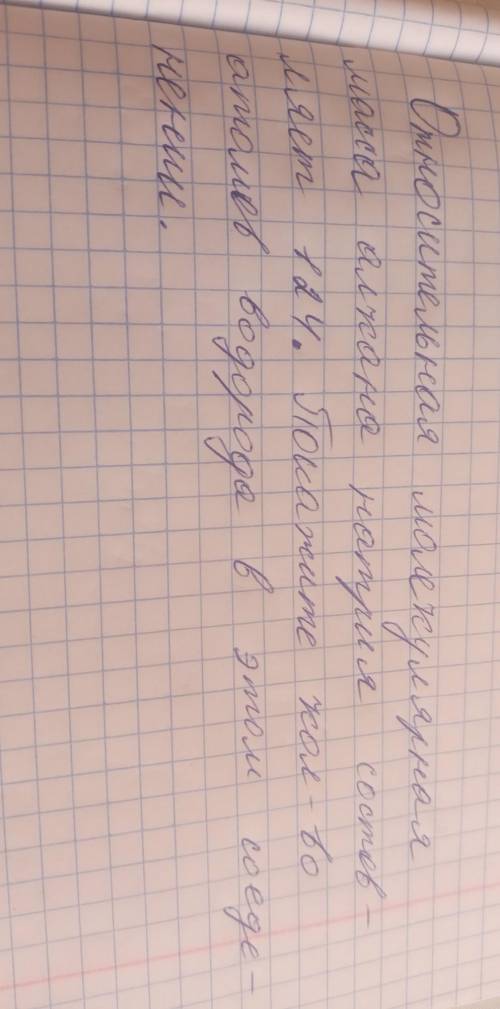 Относительная молекулярная
масса алкана натрия состав-
ляет 124. Покажите кол-во
атомов водорода в этом соеде-
нении.